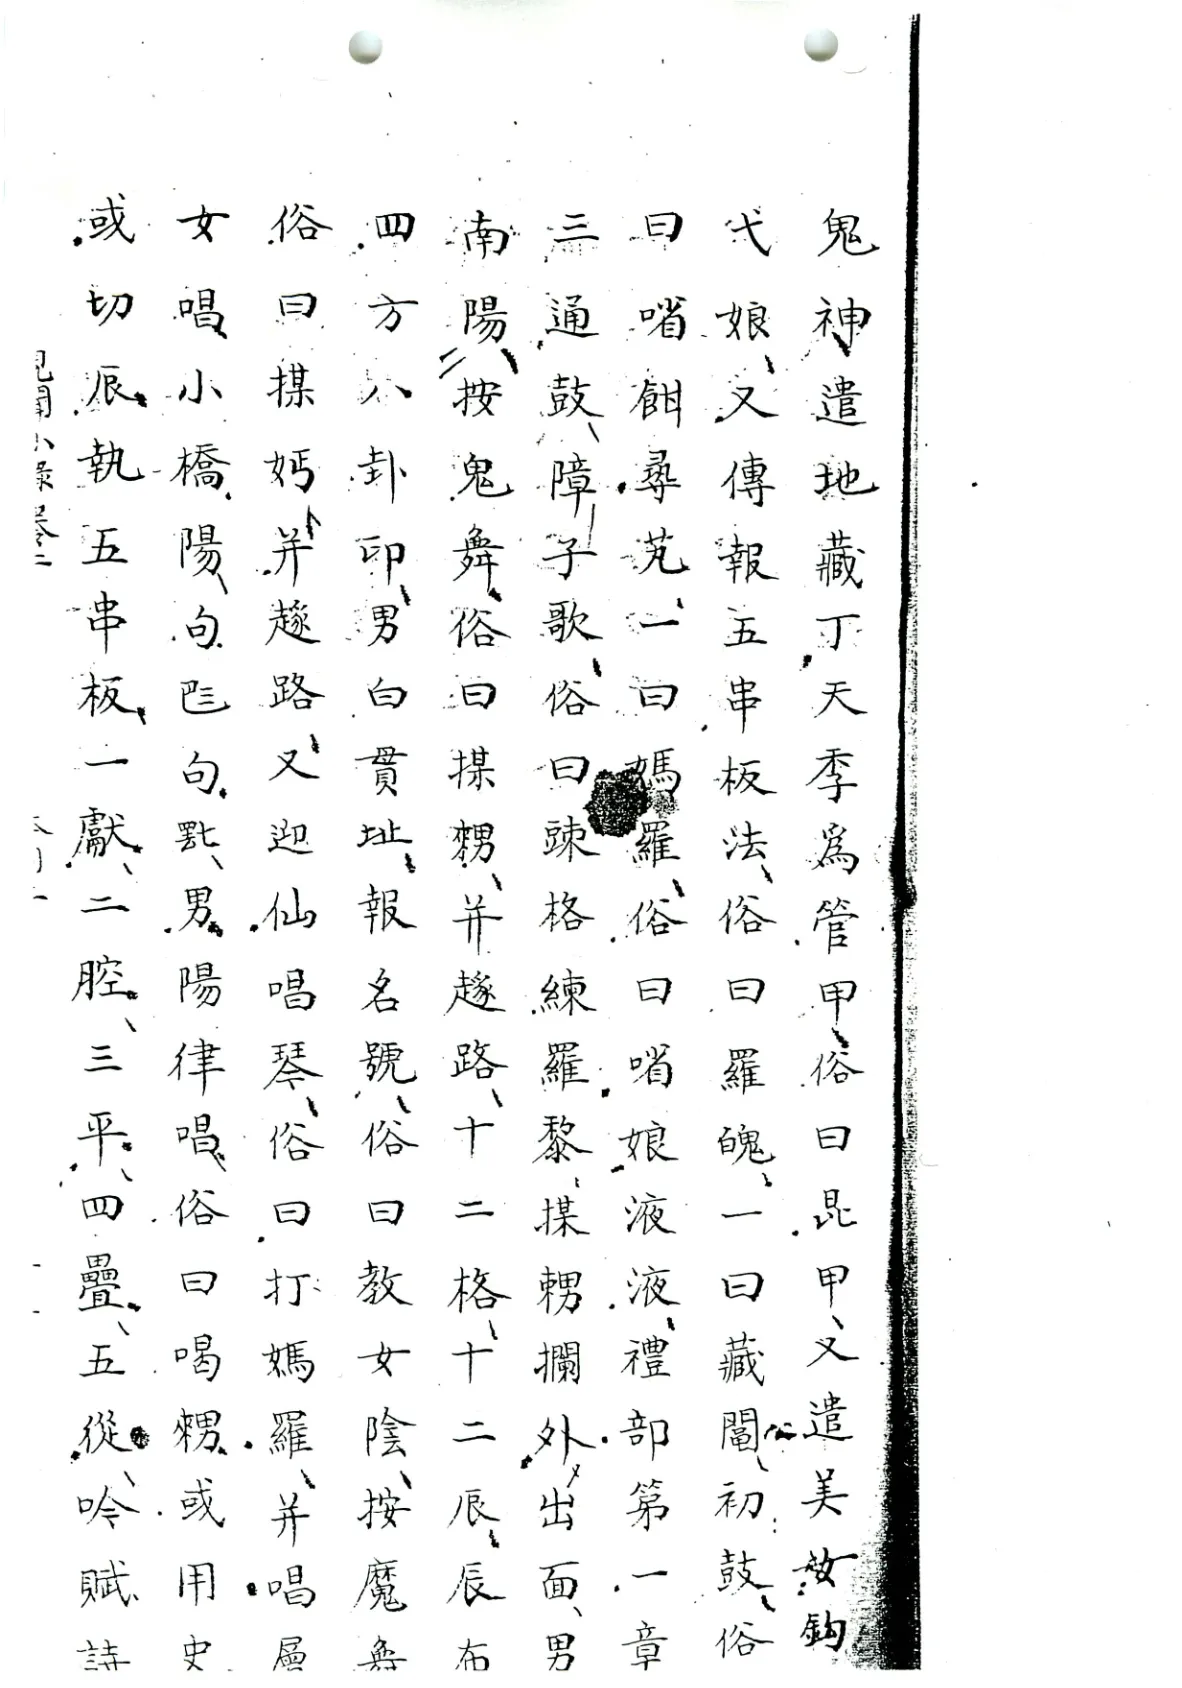 鬼神遣地藏丁天季為管甲俗曰昆甲又遣美女鈎
弋娘又傳報五串板法俗曰羅魄一曰藏鬮初鼓俗
曰哨㗂尋芃一曰媽羅俗曰哨娘液液禮部第一章
三通鼓障子歌俗曰諫格練羅黎㨋𠡚攔外出面男
南陽按鬼舞俗曰㨋𠡚并趂路十二格十二辰辰布
四方八卦印男白貫址報名號俗曰教女陰按魔舞
俗曰㨋妈并趂路又迎仙唱琴俗曰打媽羅并唱層
女唱小橋陽句𠀧句男陽律唱俗曰喝𠡚或用史
或切辰執五串板一獻二腔三平四疊五從吟賦詩
見聞小錄卷二